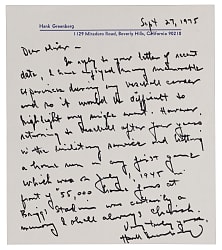 Hank Greenberg
1129 Miradero Road, Beverly Hills, California 90210
Sept 27, 1975
Dear
In reply to your letter of recent
date, I have enjoyed many memorable
experiences during my baseball career
and so it would be difficult to
highlight any single event. However
returning to baseball after four years
in the military service and hitting
a home run in my first game
which was on July 1, 1945
front of 55,000 fans at
Briggs Stadium was certainly a
memory I shall always cherish.
Very truly yours,
Hank Greenberg